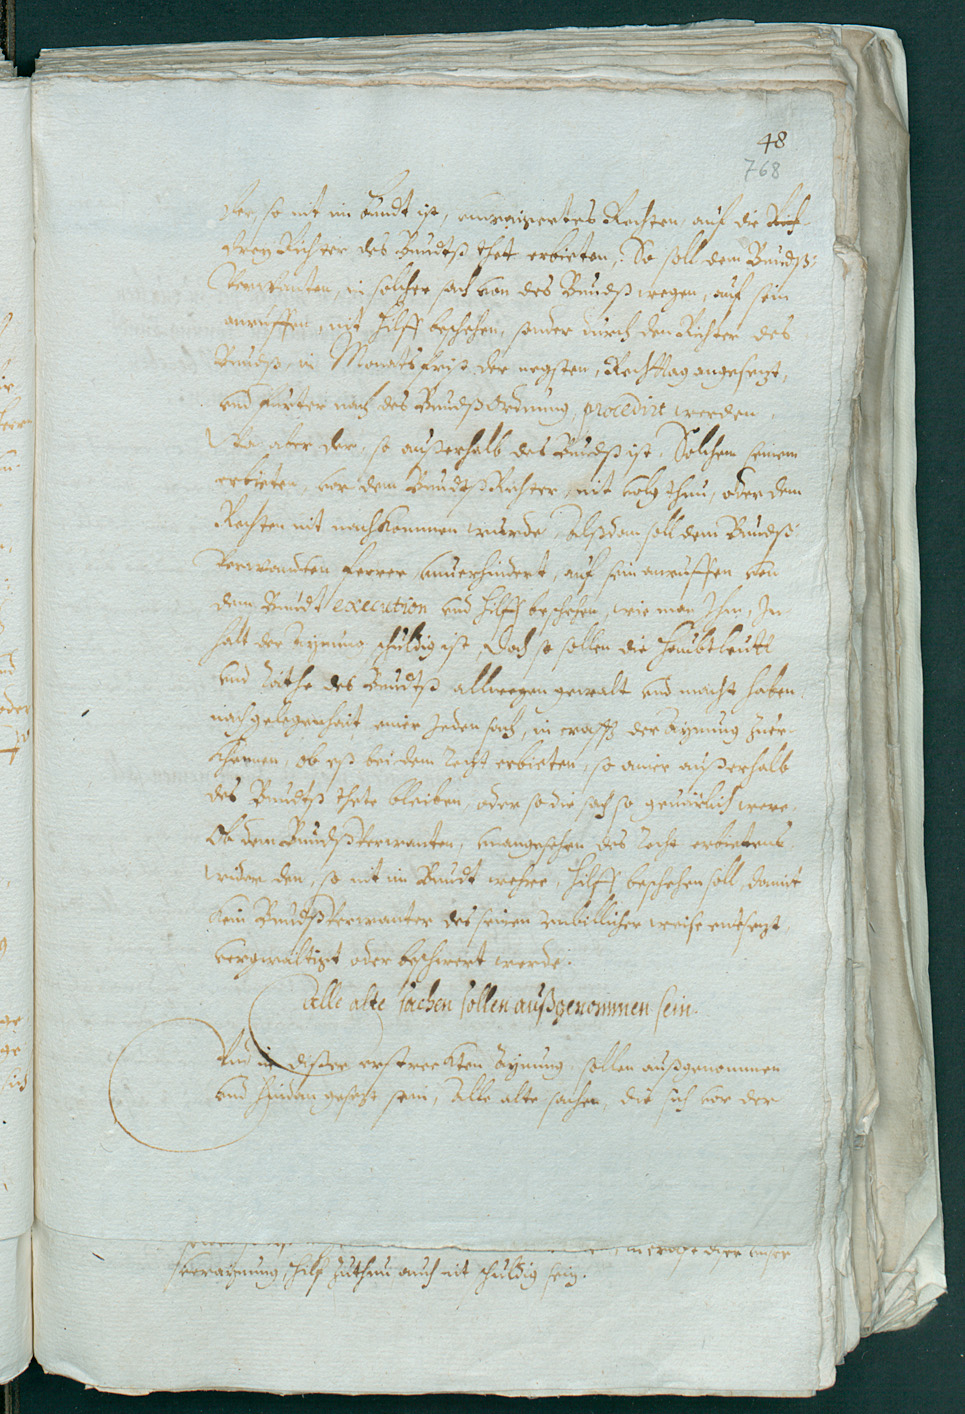 48
768
der, so nit im Bundt ist, unwaigertes Rechten, auf die
drey Richter des Bundtß thet erbieten, So soll dem Bundtß
Verwanten, in solcher sach von des Bundtß wegen, auf sein
anruffen, nit hilff beschehen, sonder durch den Richter des
Bundtß, in Monats frist der negsten, Rechttag angesetzt,
und furter nach des Bundtß Ordnung, procedirt werden.
Wa aber der, so ausserhalb des Bundtß ist, Solchem seinem
erbieten, vor dem Bundtß Richter, nit volg thun, oder dem
Rechten nit nachkommen wurde, Alßdan soll dem Bundtß
Verwandten ferrer unverhindert, auf sein anruffen von
dem Bundt execution und hilff beschehen, wie man Ihm, In-
halt der Aynung schuldig ist, Doch so sollen die Haubtleutt
und Räthe des Bundtß allwegen gewalt und macht haben
nach gelegenhait, einer Jeden sach, in crafft der Aynung zuer-
khennen, ob eß bei dem Recht erbieten, so ainer ausserhalb
des Bundtß thete bleiben, oder so die sach so gevärlich were,
Ob dem Bundtß Verwanten, unangesehen des Recht erbietens
wider den, so nit im Bundt wehre, hilff beschehen soll, damit
kein Bundtß Verwanter des seinen unbillicher weise entsetzt,
vergwaltigt oder beschwert werde.
Alle alte sachen sollen außgenommen sein.
Und in diser erstreckten Aynung, sollen außgenommen
und hindan gesetzt sein, Alle alte sachen, die sich vor der
veraynung, hilf zuthun auch nit schuldig sein.